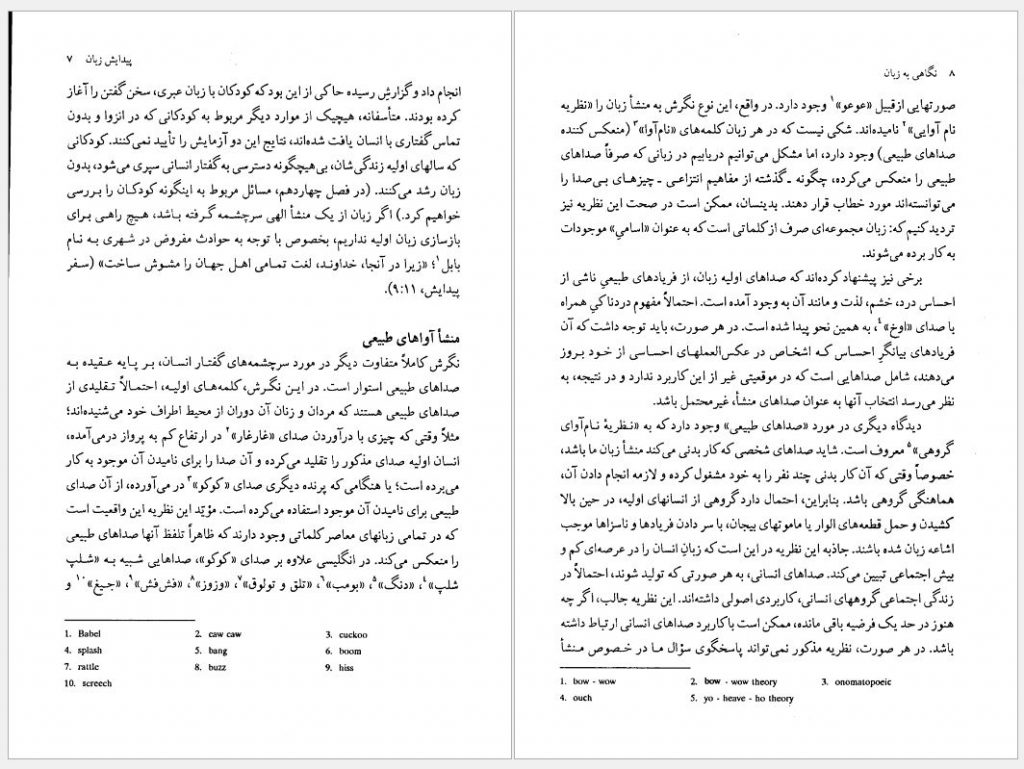 پیدایش زبان ۷
انجام داد و گزارشِ رسیده حاکی از این بود که کودکان با زبان عبری، سخن گفتن را آغاز
کرده بودند. متأسفانه، هیچیک از موارد دیگر مربوط به کودکانی که در انزوا و بدون
تماس گفتاری با انسان یافت شده‌اند، نتایج این دو آزمایش را تأیید نمی‌کنند. کودکانی
که سالهای اولیه زندگی‌شان، بی‌هیچگونه دسترسی به گفتار انسانی سپری می‌شود، بدون
زبان رشد می‌کنند. (در فصل چهاردهم، مسائل مربوط به اینگونه کودکان را بررسی
خواهیم کرد.) اگر زبان از یک منشأ الهی سرچشمه گرفته باشد، هیچ راهی برای
بازسازی زبان اولیه نداریم، بخصوص با توجه به حوادث مفروض در شهری به نام
بابل۱؛ «زیرا در آنجا، خداوند، لغت تمامی اهل جهان را مشوش ساخت» (سفر
پیدایش، ۹:۱۱).
منشأ آواهای طبیعی
نگرش کاملاً متفاوت دیگر در مورد سرچشمه‌های گفتار انسان، بر پایه عقیده به
صداهای طبیعی استوار است. در این نگرش، کلمه‌های اولیه، احتمالاً تقلیدی از
صداهای طبیعی هستند که مردان و زنان آن دوران از محیط اطراف خود می‌شنیده‌اند؛
مثلاً وقتی که چیزی با درآوردن صدای «غارغار»۲ در ارتفاع کم به پرواز درمی‌آمده،
انسان اولیه صدای مذکور را تقلید می‌کرده و آن صدا را برای نامیدن آن موجود به کار
می‌برده است؛ یا هنگامی که پرنده دیگری صدای «کوکو»۳ در می‌آورده، از آن صدای
طبیعی برای نامیدن آن موجود استفاده می‌کرده است. مؤیّد این نظریه این واقعیت است
که در تمامی زبانهای معاصر کلماتی وجود دارند که ظاهراً تلفظ آنها صداهای طبیعی
را منعکس می‌کند. در انگلیسی علاوه بر صدای «کوکو»، صداهایی شبیه به «شلپ
شلپ»۴، «دنگ»۵، «بومب»۶، «تلق و تولوق»۷، «وزوز»۸، «فش‌فش»۹، «جیغ»۱۰ و
1. Babel 2. caw caw 3. cuckoo
4. splash 5. bang 6. boom
7. rattle 8. buzz 9. hiss
10. screech
۸ نگاهی به زبان
صورتهایی از قبیل «عوعو»۱ وجود دارد. در واقع، این نوع نگرش به منشأ زبان را «نظریه
نام آوایی»۲ نامیده‌اند. شکی نیست که در هر زبان کلمه‌های «نام‌آوا»۳ (منعکس کننده
صداهای طبیعی) وجود دارد، اما مشکل می‌توانیم دریابیم در زبانی که صرفاً صداهای
طبیعی را منعکس می‌کرده، چگونه ـ گذشته از مفاهیم انتزاعی ـ چیزهای بی‌صدا را
می‌توانسته‌اند مورد خطاب قرار دهند. بدینسان، ممکن است در صحت این نظریه نیز
تردید کنیم که: زبان مجموعه‌ای صرف از کلماتی است که به عنوان «اسامی» موجودات
به کار برده می‌شوند.
برخی نیز پیشنهاد کرده‌اند که صداهای اولیه زبان، از فریادهای طبیعیِ ناشی از
احساس درد، خشم، لذت و مانند آن به وجود آمده است. احتمالاً مفهوم دردناکیِ همراه
با صدای «اوخ»۴، به همین نحو پیدا شده است. در هر صورت، باید توجه داشت که آن
فریادهای بیانگرِ احساس که اشخاص در عکس‌العملهای احساسی از خود بروز
می‌دهند، شامل صداهایی است که در موقعیتی غیر از این کاربرد ندارد و در نتیجه، به
نظر می‌رسد انتخاب آنها به عنوان صداهای منشأ، غیرمحتمل باشد.
دیدگاه دیگری در مورد «صداهای طبیعی» وجود دارد که به «نظریهٔ نام‌آوای
گروهی»۵ معروف است. شاید صداهای شخصی که کار بدنی می‌کند منشأ زبان ما باشد،
خصوصاً وقتی که آن کار بدنی چند نفر را به خود مشغول کرده و لازمه انجام دادن آن،
هماهنگی گروهی باشد. بنابراین، احتمال دارد گروهی از انسانهای اولیه، در حین بالا
کشیدن و حمل قطعه‌های الوار یا ماموتهای بیجان، با سر دادن فریادها و ناسزاها موجب
اشاعه زبان شده باشند. جاذبه این نظریه در این است که زبانِ انسان را در عرصه‌ای کم و
بیش اجتماعی تبیین می‌کند. صداهای انسانی، به هر صورتی که تولید شوند، احتمالاً در
زندگی اجتماعی گروههای انسانی، کاربردی اصولی داشته‌اند. این نظریه جالب، اگر چه
هنوز در حد یک فرضیه باقی مانده، ممکن است با کاربرد صداهای انسانی ارتباط داشته
باشد. در هر صورت، نظریه مذکور نمی‌تواند پاسخگوی سؤال ما در خصوص منشأ
1. bow - wow 2. bow - wow theory 3. onomatopoeic
4. ouch 5. yo - heave - ho theory